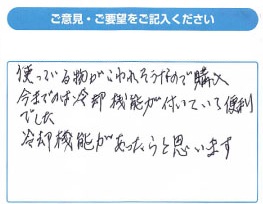 ご意見・ご要望をご記入ください
使っている物がこわれそうなので購入
今までのは冷却機能が付いていて便利
でした
冷却機能があったらと思います